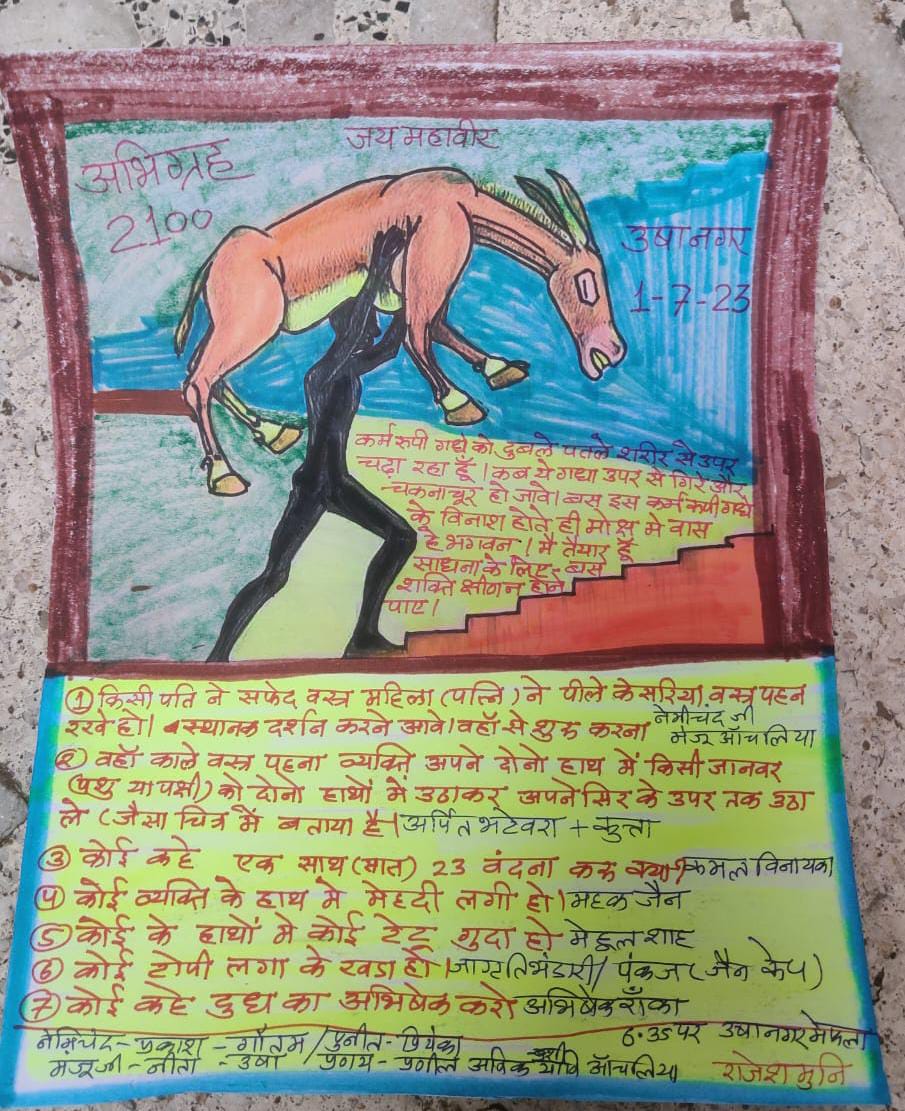 जय महावीर
अभिग्रह
2100
उषा नगर
1-7-23
कर्म रुपी गधे को दुबले पतले शरीर से उपर
चढ़ा रहा हूँ। कब ये गधा उपर से गिरे और
चकनाचूर हो जावे। बस इस कर्म रूपी गधे
के विनाश होते ही मोक्ष मे वास
हे भगवन। मै तैयार हूँ
साधना के लिए- बस
शक्ति क्षीण न होने
पाए।
① किसी पति ने सफेद वस्त्र महिला (पत्नि) ने पीले केसरिया वस्त्र पहन
रखे हो। स्थानक दर्शन करने आवे। वहाँ से शुरू करना नेमीचंद जी
मंजू आँचलिया
② वहाँ काले वस्त्र पहना व्यक्ति अपने दोनो हाथ में किसी जानवर
(पशु या पक्षी) को दोनो हाथों में उठाकर अपने सिर के उपर तक उठा
ले (जैसा चित्र में बताया है। अर्पित भटेवरा + कुत्ता
③ कोई कहे एक साथ (सात) 23 वंदना करू क्या कमल विनायका
④ कोई व्यक्ति के हाथ मे मेहदी लगी हो। महक जैन
⑤ कोई के हाथों मे कोई टेटू गुदा हो मेहुल शाह
⑥ कोई टोपी लगा के खडा हो। जागृति भंडारी/ पंकज (जैन केप)
⑦ कोई कहे दुध का अभिषेक करो अभिषेक राँका
नेमिचंद - प्रकाश - गौतम / पुनीत - प्रियंका 6.35 पर उषानगर मे फला
मंजूजी - नीता - उषा आँचलिया राजेश मुनि